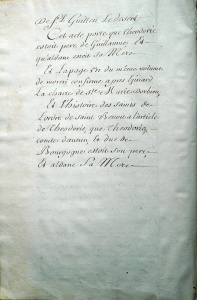 De St. Guillen Le desert
Cet acte porte que Theodoric
estoit pere de Guillaume Et
qu'aldane estoit Sa Mere
Et La page 570 du même volume
de moroy confirme apres Girard
La charte de ste. Marie Dorbieu
Et L'histoire des saints de
Lordre de saint Benoit a Larticle
de Theodoric, que Theodoric
comte dautun Et duc de
Bourgogne estoit Son pere,
Et aldane Sa Mere